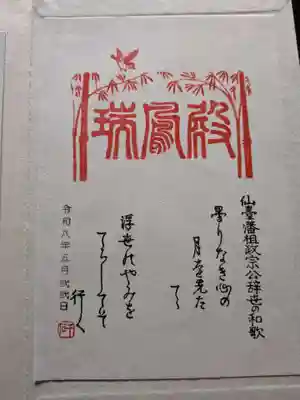 瑞鳳殿
仙臺藩祖政宗公辞世の和歌
曇りなき心の
月を先た
てゝ
浮世のやみを
てらしてそ
行く
令和八年五月弐弐日